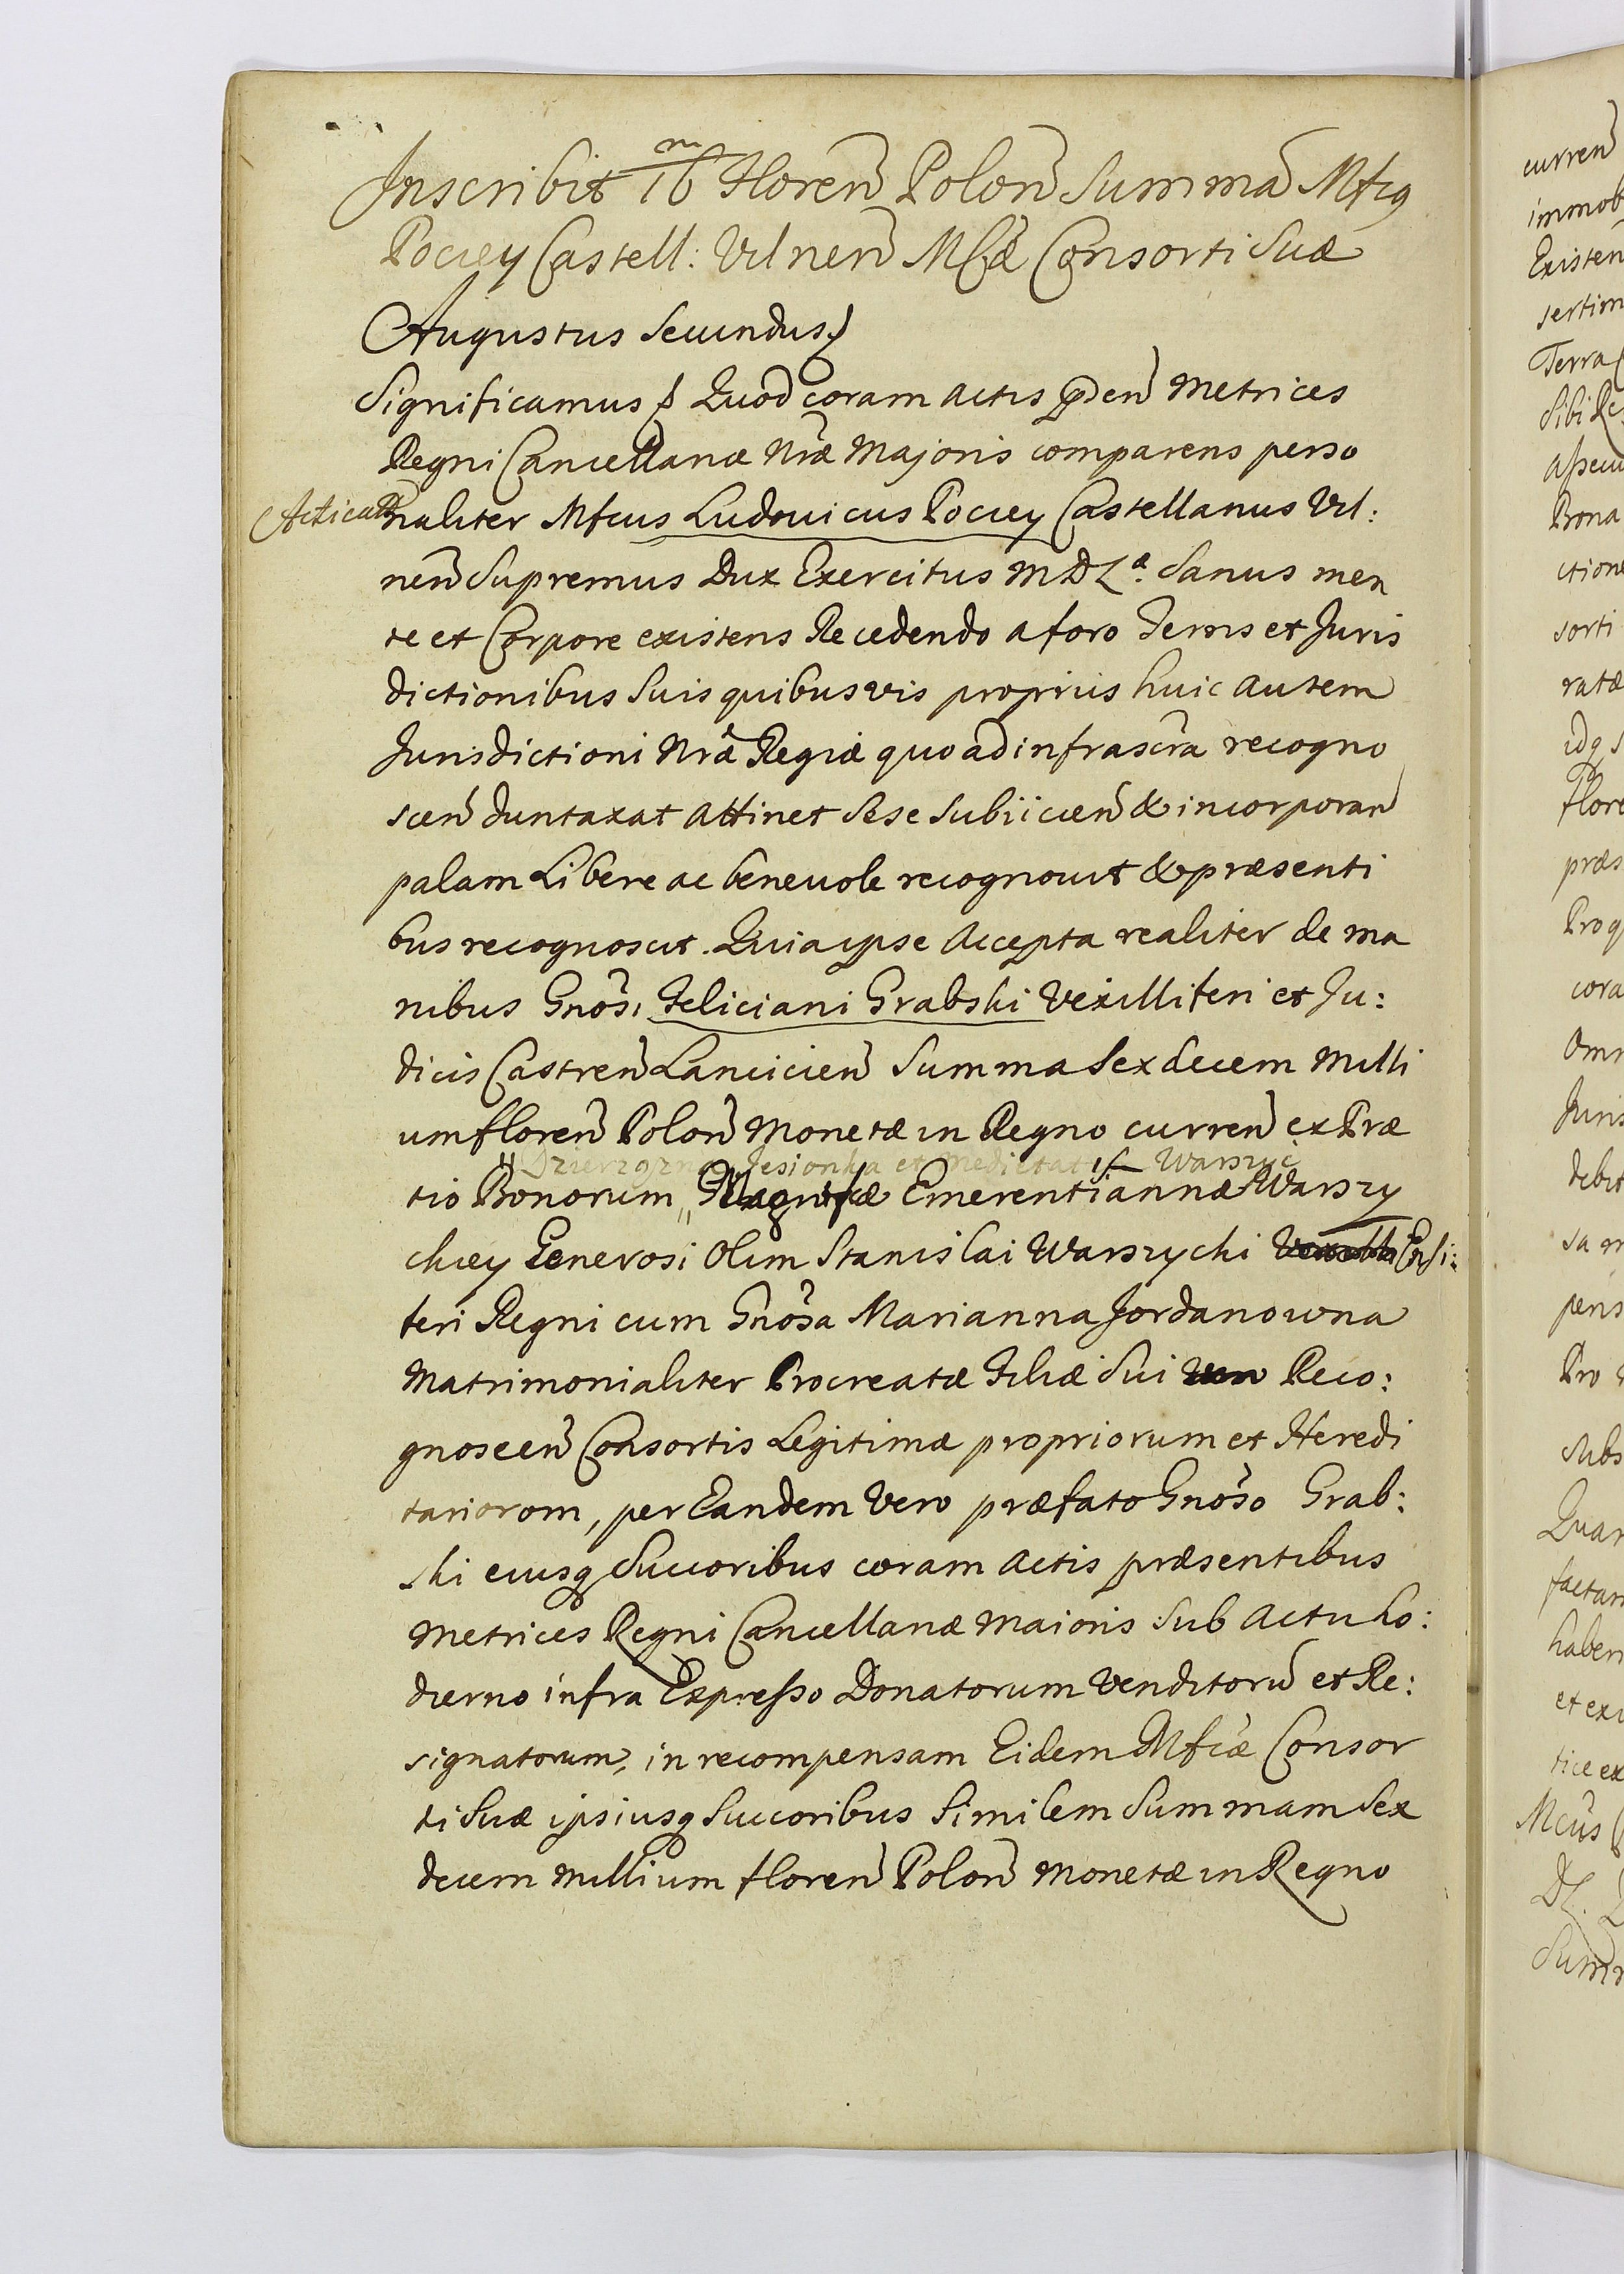 Inscribit 16 m Floren Polon Summā Mfcq
Pociey Castell: Vilnen Mcæ Consorti Suæ
Augustus Secundus
Significamus Quod coram actis pnden Metrices
Regni Cancellariæ Nræ Majoris comparens perso
Acticat
naliter Mfcus Ludovicus Pociey Castellanus Vil:
nen Supremus Dux Exercitus M D L a. Sanus men
te et Corpore existens Recedendo a foro Terris et Juris
dictionibus Suis quibusvis propriis huic autem
Jurisdictioni Nræ Regiæ quoad infrascra recogno
scen duntaxat attinet Sese Subiicien & incorporan
palam Libere ac benevole recognovit & præsenti
bus recognoscit. Quia ipse Accepta realiter de ma
nibus Gnosi Feliciani Grabski Vexilliferi et Ju:
dicis Castren Lancicien Summa Sexdecem Milli
um floren Polon Monetæ in Regno curren ex Præ
Dzierzązna Jesionka et Medietat Warszyc
tio Bonorum Magnifcæ Emerentiannæ Warszy
ckiey Generosi Olim Stanislai Warszycki Ensi:
feri Regni cum Gnosa Marianna Jordanowna
Matrimonialiter Procreatæ Filiæ Sui vero Reco:
gnoscen Consortis Legitimæ propriorum et Heredi
tariorom, per Eandem Vero præfato Gnoso Grab:
ski eiusq Succoribus coram Actis præsentibus
Metrices Regni Cancellariæ Maioris Sub Actu ho:
dierno infra Expresso Donatorum Venditorū et Re:
signatorum, in recompensam Eidem Mfcæ Consor
ti Suæ ipsiusq Succoribus Similem Summam Sex
decem Millium floren Polon Monetæ in Regno
curren
immob
Existen
sertim
Terra
Sibi Re
Assecu
Bona
ctione
sorti
ratæ
idq
flore
præs
Proq
cora
Omn
Juris
debit
pens
Pro
Subs
Quar
factam
haben
et ex
tice ex
Mcus
DL.
Summ